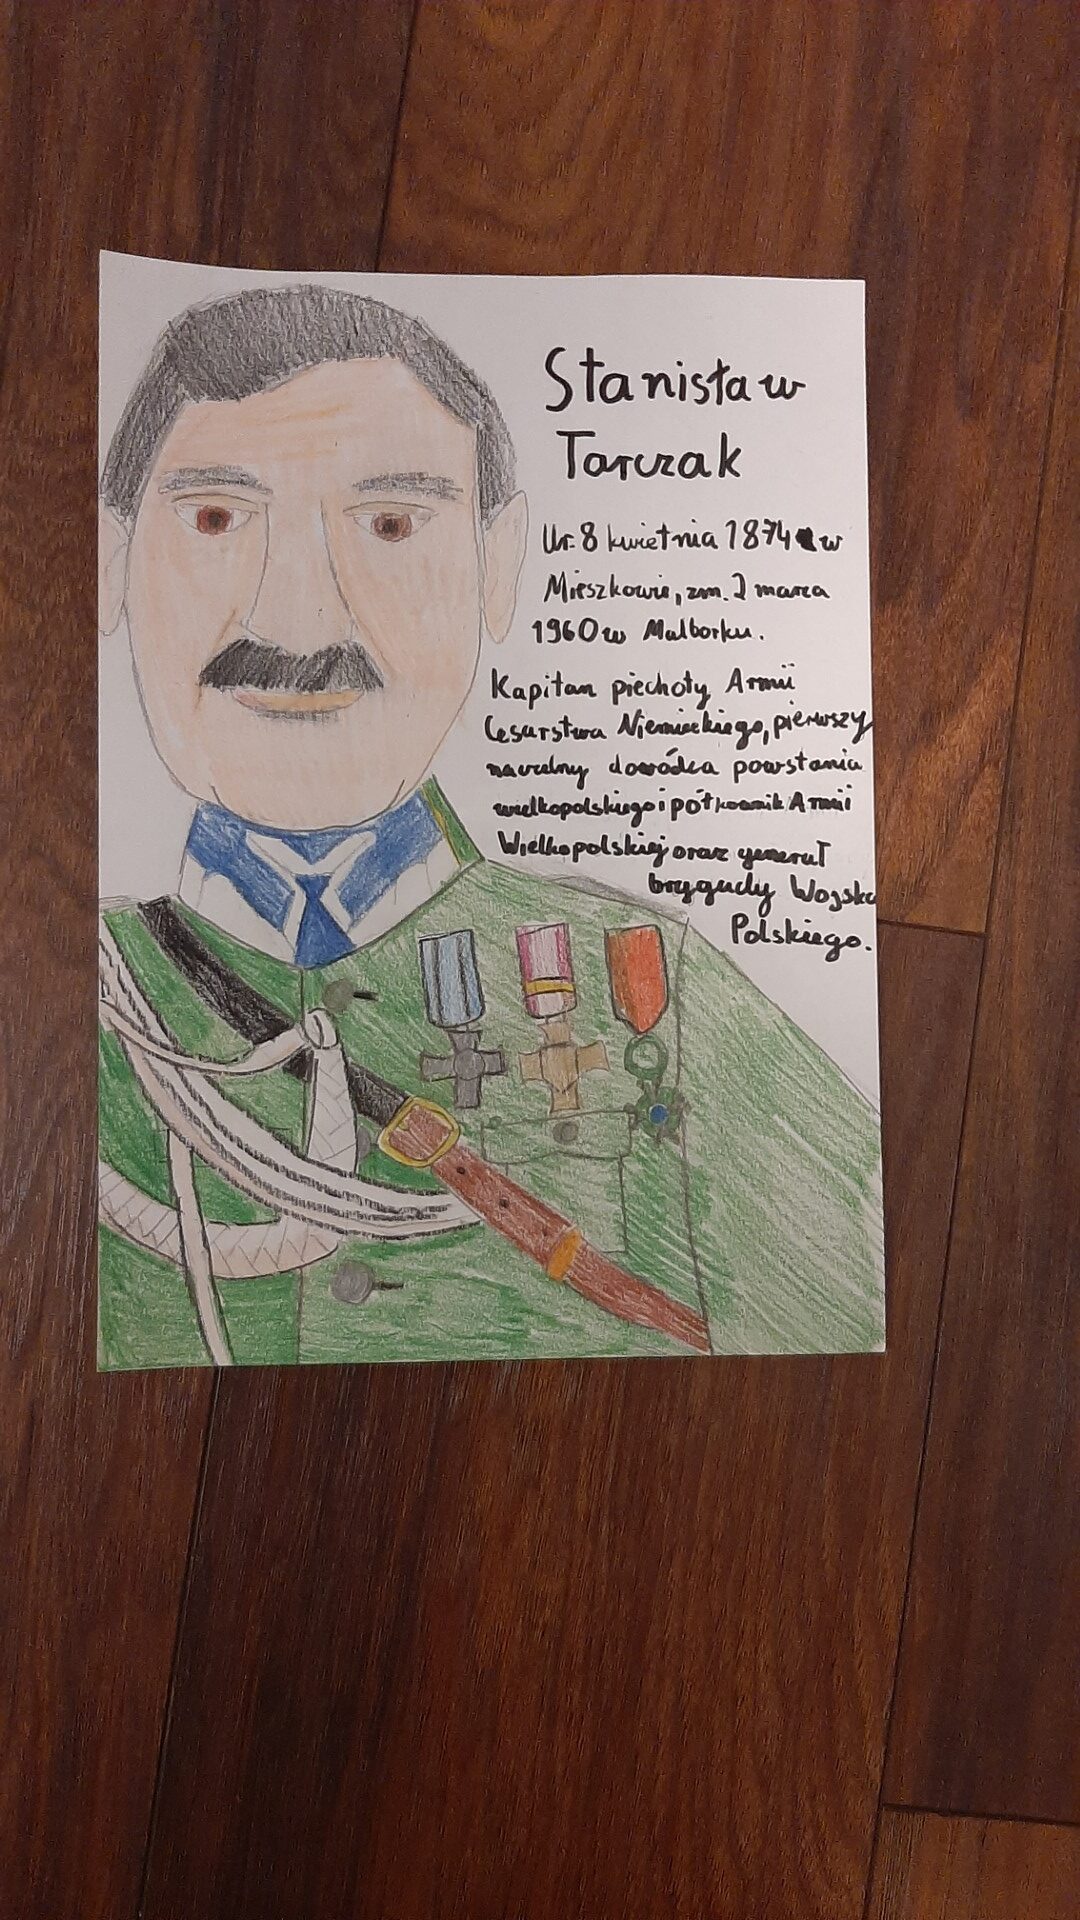 Stanisław
Tarczak
Ur. 8 kwietnia 1874 w
Mieszkowie, zm. 2 marca
1960 w Malborku.
Kapitan piechoty Armii
Cesarstwa Niemieckiego, pierwszy
naczelny dowódca powstania
wielkopolskiego i półkownik Armii
Wielkopolskiej oraz generał
brygady Wojska
Polskiego.